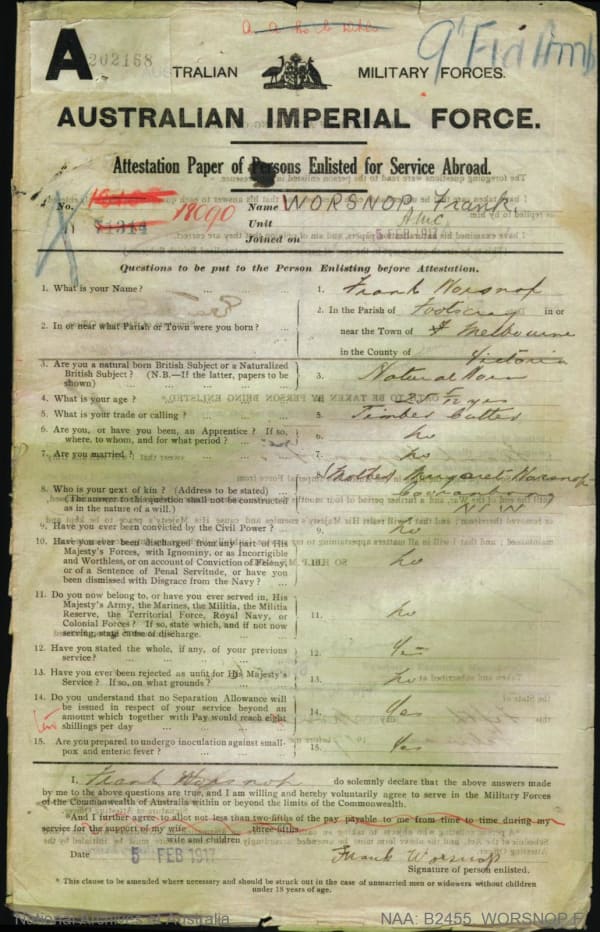 A 202168
9' Fld Amb
AUSTRALIAN MILITARY FORCES.
AUSTRALIAN IMPERIAL FORCE.
Attestation Paper of Persons Enlisted for Service Abroad.
No. 18090 Name WORSNOP, Frank
Unit AMC
Joined on 5 FEB 1917
Questions to be put to the Person Enlisting before Attestation.
1. What is your Name? ... ... 1. Frank Worsnop
2. In or near what Parish or Town were you born? ... 2. In the Parish of Footscray in or
near the Town of Melbourne
in the County of Victoria
3. Are you a natural born British Subject or a Naturalized
British Subject? (N.B.—If the latter, papers to be
shown) ... ... ... 3. Natural Born
4. What is your age? ... ... 4.
5. What is your trade or calling? ... ... 5 Timber Cutter
6. Are you, or have you been, an Apprentice? If so,
where, to whom, and for what period? ... 6. no
7. Are you married? ... ... 7. no
8. Who is your next of kin? (Address to be stated) ...
(The answer to this question shall not be constructed
as in the nature of a will.) 8. Mother Margaret Worsnop
NSW
9. Have you ever been convicted by the Civil Power? ... 9. no
10. Have you ever been discharged from any part of His
Majesty's Forces, with Ignominy, or as Incorrigible
and Worthless, or on account of Conviction of Felony,
or of a Sentence of Penal Servitude, or have you
been dismissed with Disgrace from the Navy? ... 10. no
11. Do you now belong to, or have you ever served in, His
Majesty's Army, the Marines, the Militia, the Militia
Reserve, the Territorial Force, Royal Navy, or
Colonial Forces? If so, state which, and if not now
serving, state cause of discharge. 11. no
12. Have you stated the whole, if any, of your previous
service? ... ... ... 12. Yes
13. Have you ever been rejected as unfit for His Majesty's
Service? If so, on what grounds? ... 13. no
14. Do you understand that no Separation Allowance will
be issued in respect of your service beyond an
amount which together with Pay would reach eight
ten shillings per day ... ... 14. Yes
15. Are you prepared to undergo inoculation against small-
pox and enteric fever? ... ... 15. Yes
I, Frank Worsnop do solemnly declare that the above answers made
by me to the above questions are true, and I am willing and hereby voluntarily agree to serve in the Military Forces
of the Commonwealth of Australia within or beyond the limits of the Commonwealth.
*And I further agree to allot not less than two-fifths of the pay payable to me from time to time during my
three-fifths
service for the support of my wife
wife and children
Date 5 FEB 1917 Frank Worsnop
Signature of person enlisted.
* This clause to be amended where necessary and should be struck out in the case of unmarried men or widowers without children
under 18 years of age.
National Archives of Australia NAA: B2455, WORSNOP F